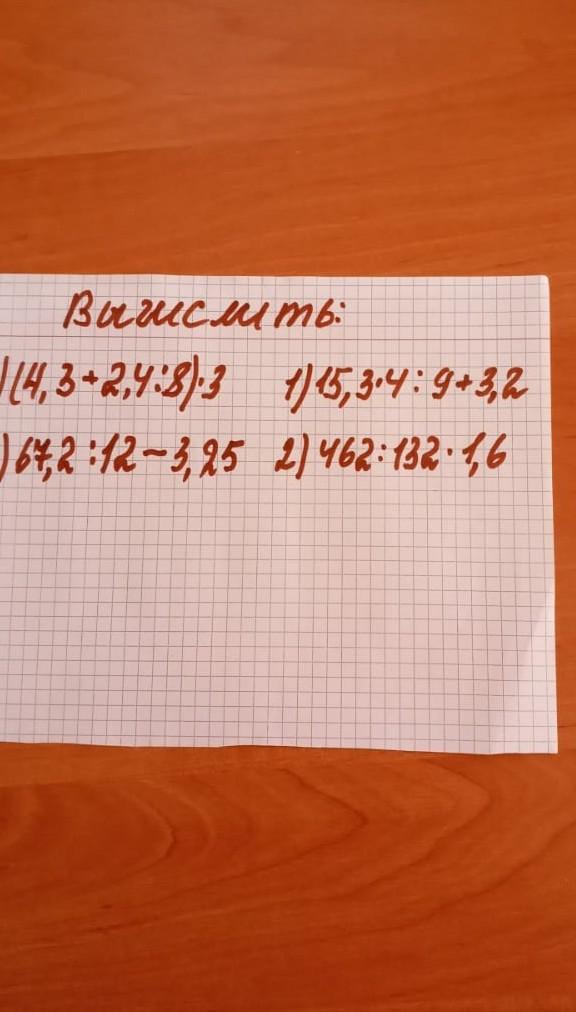 Вычислить:
)(4,3+2,4:8)·3 1)15,3·4:9+3,2
)67,2:12-3,25 2)462:132·1,6